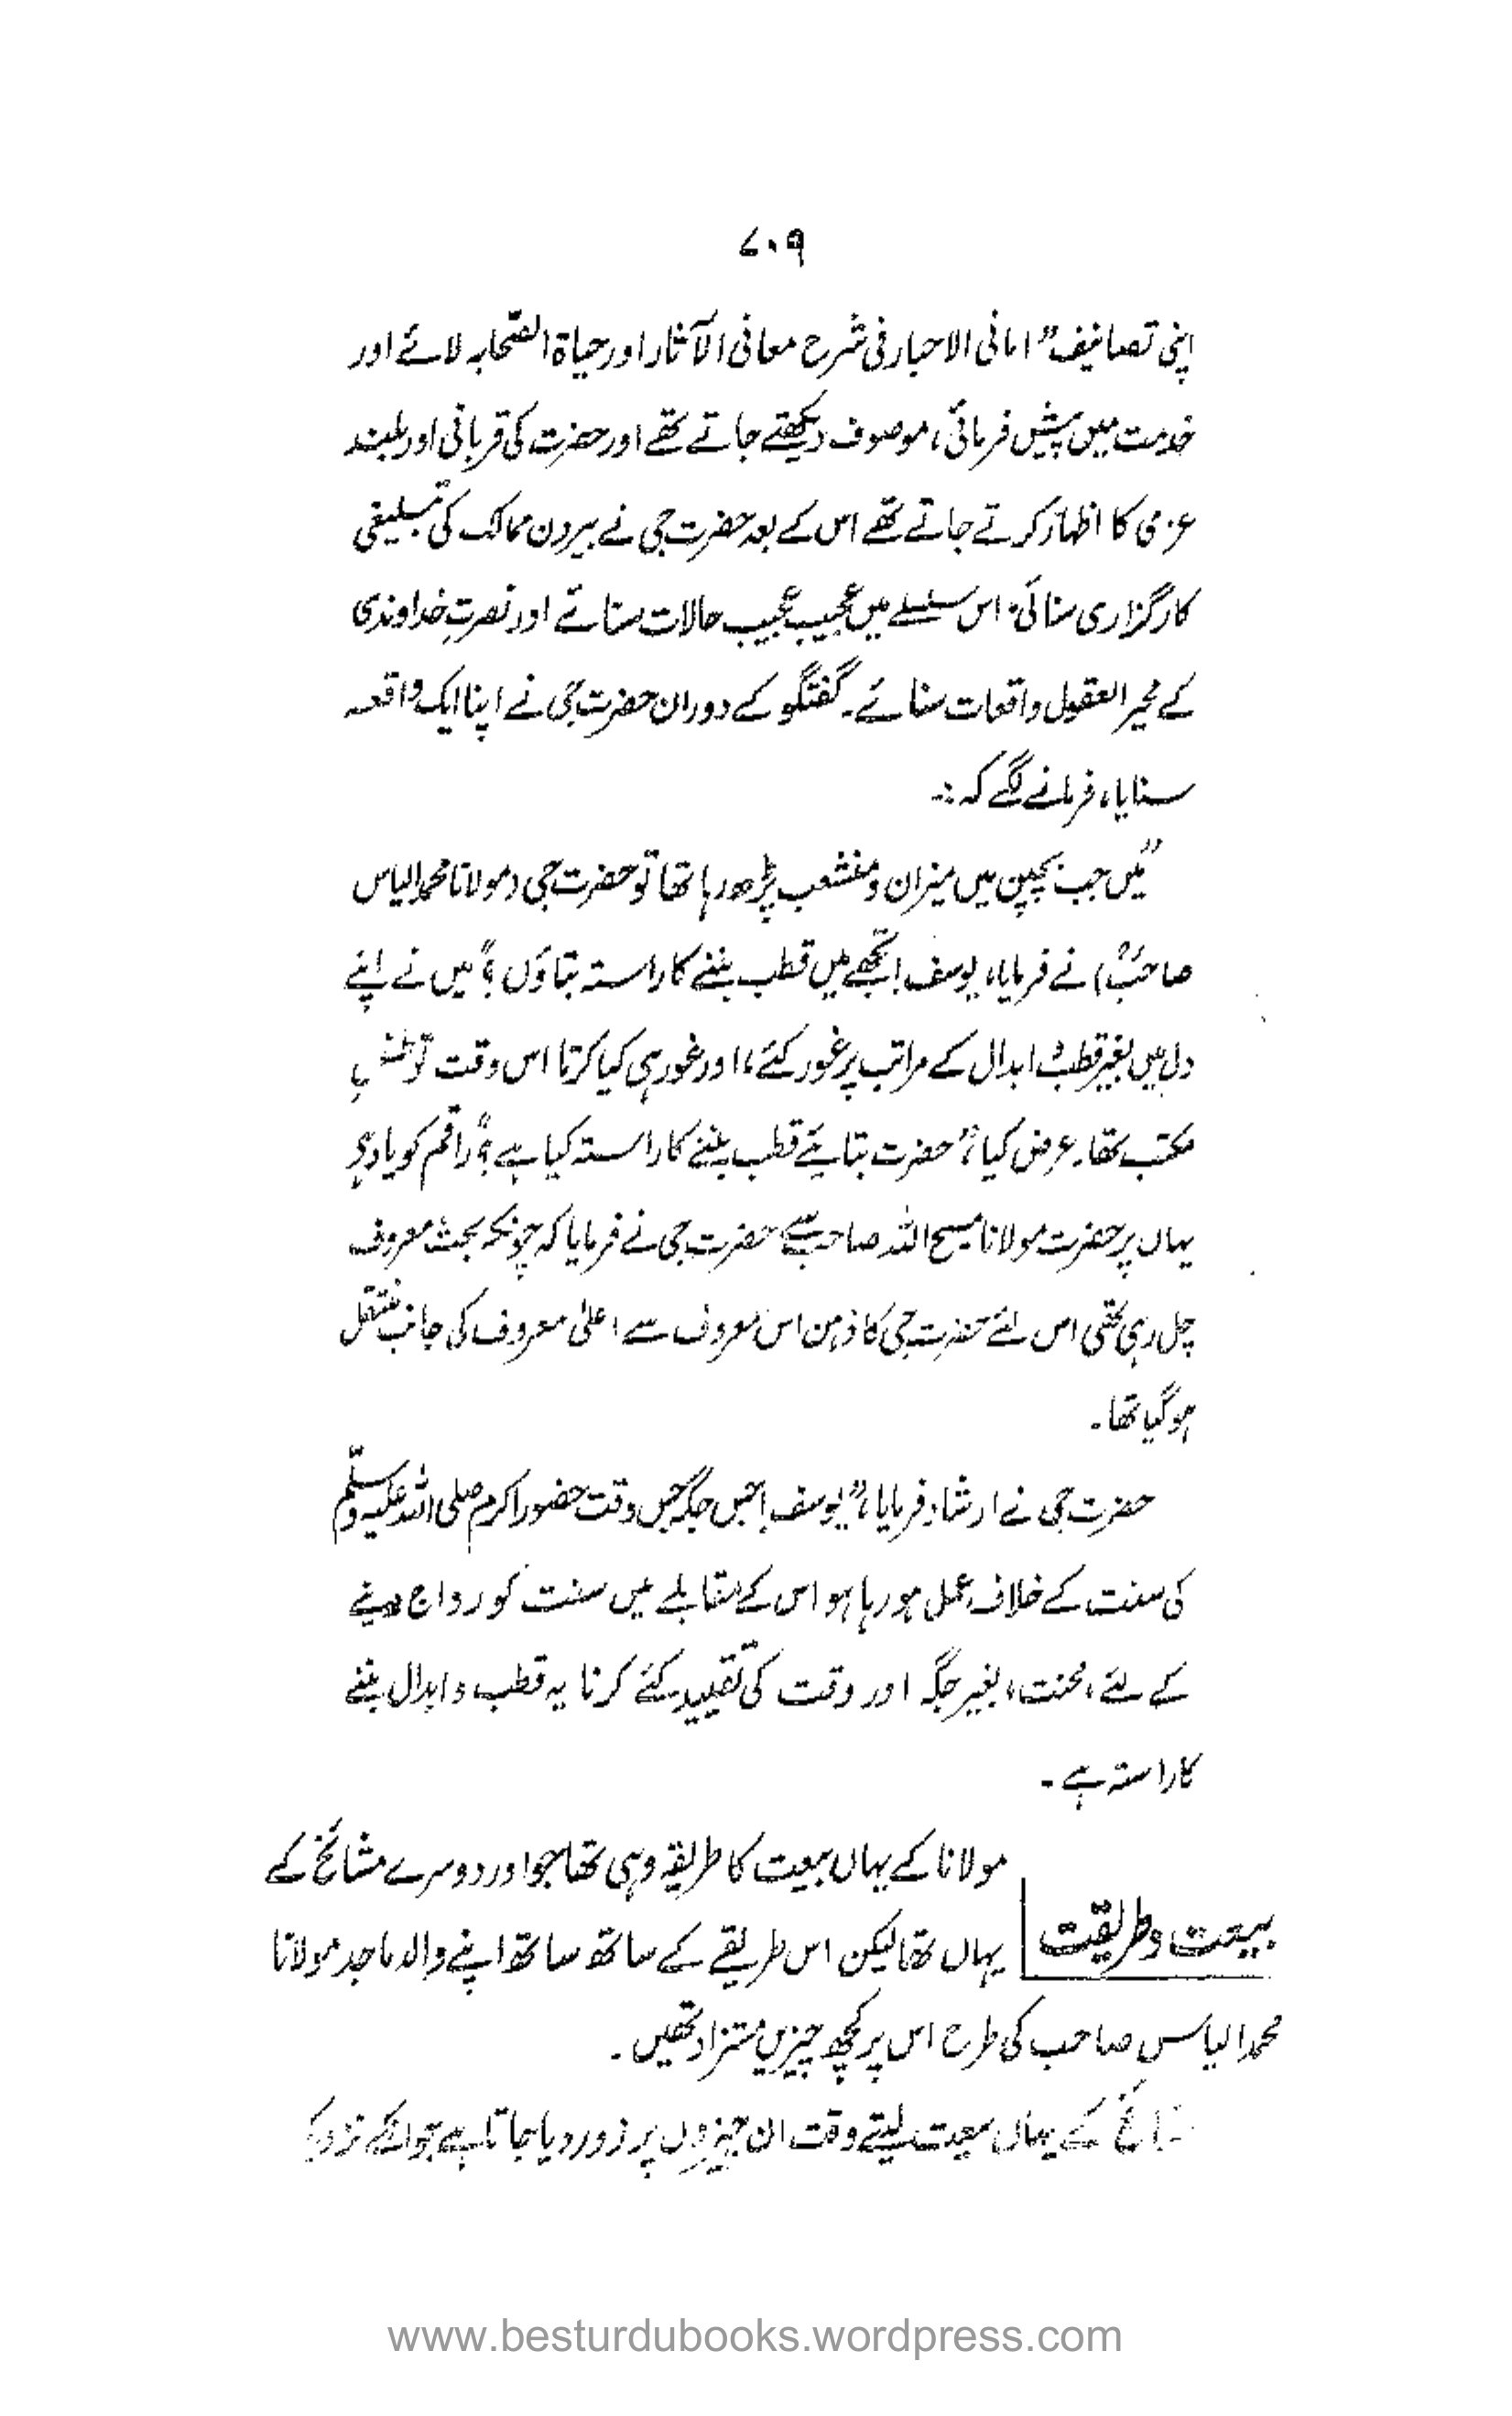 ۷۰۹
اپنی تصانیف "امانی الاحبار فی شرح معانی الآثار اور حیاۃ الصحابہ لائے اور
خدمت میں پیش فرمائی، موصوف دیکھتے جاتے تھے اور حضرت کی قربانی اور بلند
عزمی کا اظہار کرتے جاتے تھے اس کے بعد حضرت جی نے بیرون ممالک کی تبلیغی
کارگزاری سنائی، اس سلسلے میں عجیب عجیب حالات سنائے اور نصرتِ خداوندی
کے محیر العقول واقعات سنائے۔ گفتگو کے دوران حضرت جی نے اپنا ایک واقعہ
سنایا، فرمانے لگے کہ :۔
"میں جب بچپن میں میزان و منشعب پڑھ رہا تھا تو حضرت جی (مولانا محمد الیاس
صاحبؒ) نے فرمایا، یوسف! تجھے میں قطب بننے کا راستہ بتاؤں؟" میں نے اپنے
دل میں بغیر قطب و ابدال کے مراتب پر غور کئے، اور غور ہی کیا کرتا اس وقت تو طفلِ
مکتب تھا۔ عرض کیا، "حضرت بتایئے قطب بننے کا راستہ کیا ہے؟" راقم کو یاد ہے
یہاں پر حضرت مولانا مسیح اللہ صاحب سے حضرت جی نے فرمایا کہ چونکہ بحث معروف
چل رہی تھی اس لئے حضرت جی کا ذہن اس معروف سے اعلیٰ معروف کی جانب منتقل
ہو گیا تھا۔
حضرت جی نے ارشاد فرمایا، "یوسف! جس جگہ جس وقت حضور اکرم صلی اللہ علیہ وسلم
کی سنت کے خلاف عمل ہو رہا ہو اس کے مقابلے میں سنت کو رواج دینے
کے لئے، محنت، بغیر جگہ اور وقت کی تقیید کئے کرنا یہ قطب و ابدال بننے
کا راستہ ہے۔
مولانا کے یہاں بیعت کا طریقہ وہی تھا جو اور دوسرے مشائخ کے
بیعت و طریقت
یہاں تھا لیکن اس طریقے کے ساتھ ساتھ اپنے والد ماجد مولانا
محمد الیاس صاحب کی طرح اس پر کچھ چیزیں مستزاد تھیں۔
مشائخ کے یہاں بیعت لیتے وقت ان چیزوں پر زور دیا جاتا ہے جو انکے نزدیک
www.besturdubooks.wordpress.com